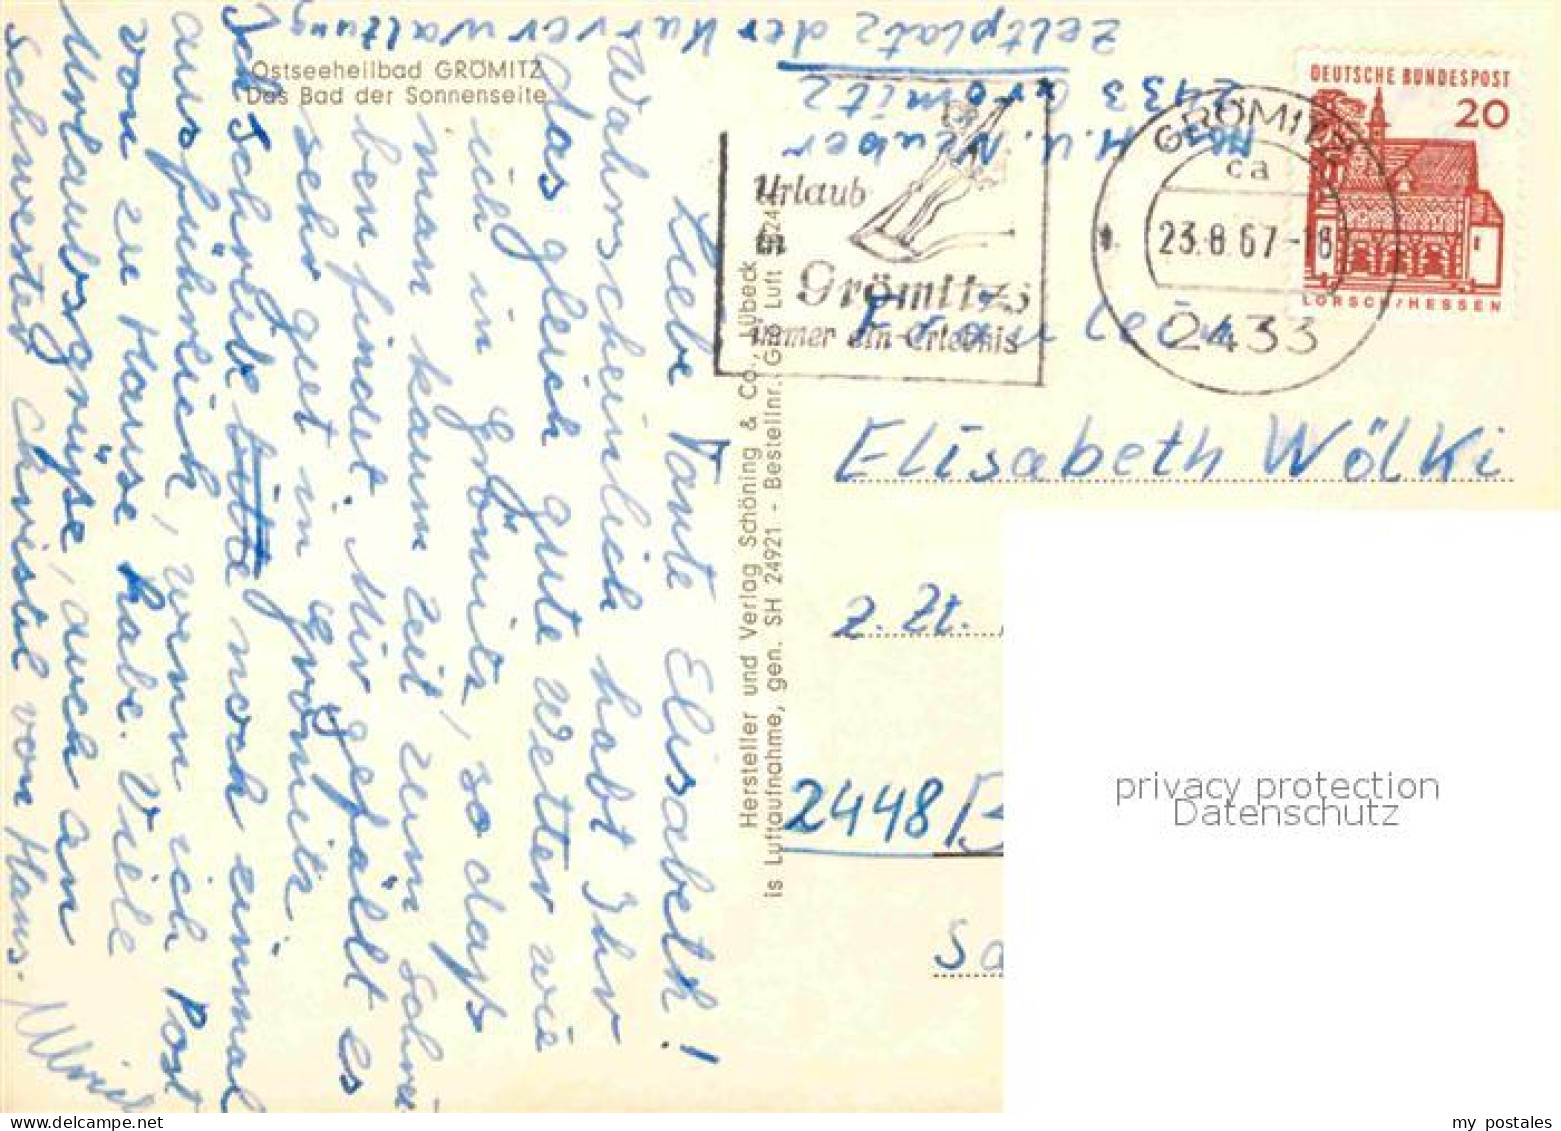 Ostseeheilbad GRÖMITZ
Das Bad der Sonnenseite
Liebe Tante Elisabeth!
Wahrscheinlich habt Ihr
das gleich gute Wetter wie
ich in Grömitz, so daß
man kaum Zeit zum Schrei
ben findet. Mir gefällt es
sehr gut in Grömitz
Ich schreibe bitte noch einmal
ausführlich, wenn ich Post
von zu Hause habe. Viele
Urlaubsgrüße, auch an
Schwester Christel von Haus.
Ulrich
H. U. Neuber
2433 Grömitz
Zeltplatz der Kurverwaltung
Hersteller und Verlag Schöning & Co., Lübeck
is Luftaufnahme, gen. SH 24921 - Bestellnr. Grö Luft
Urlaub
in
Grömitz
immer ein Erlebnis
GRÖMITZ
ca
23.8.67-18
2433
DEUTSCHE BUNDESPOST
20
LORSCH/HESSEN
Fräulein
Elisabeth Wölki
z. Zt.
2448 B
Sa
privacy protection
Datenschutz
my postales